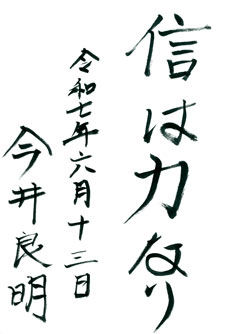 信は力なり
令和七年六月十三日
今井良明